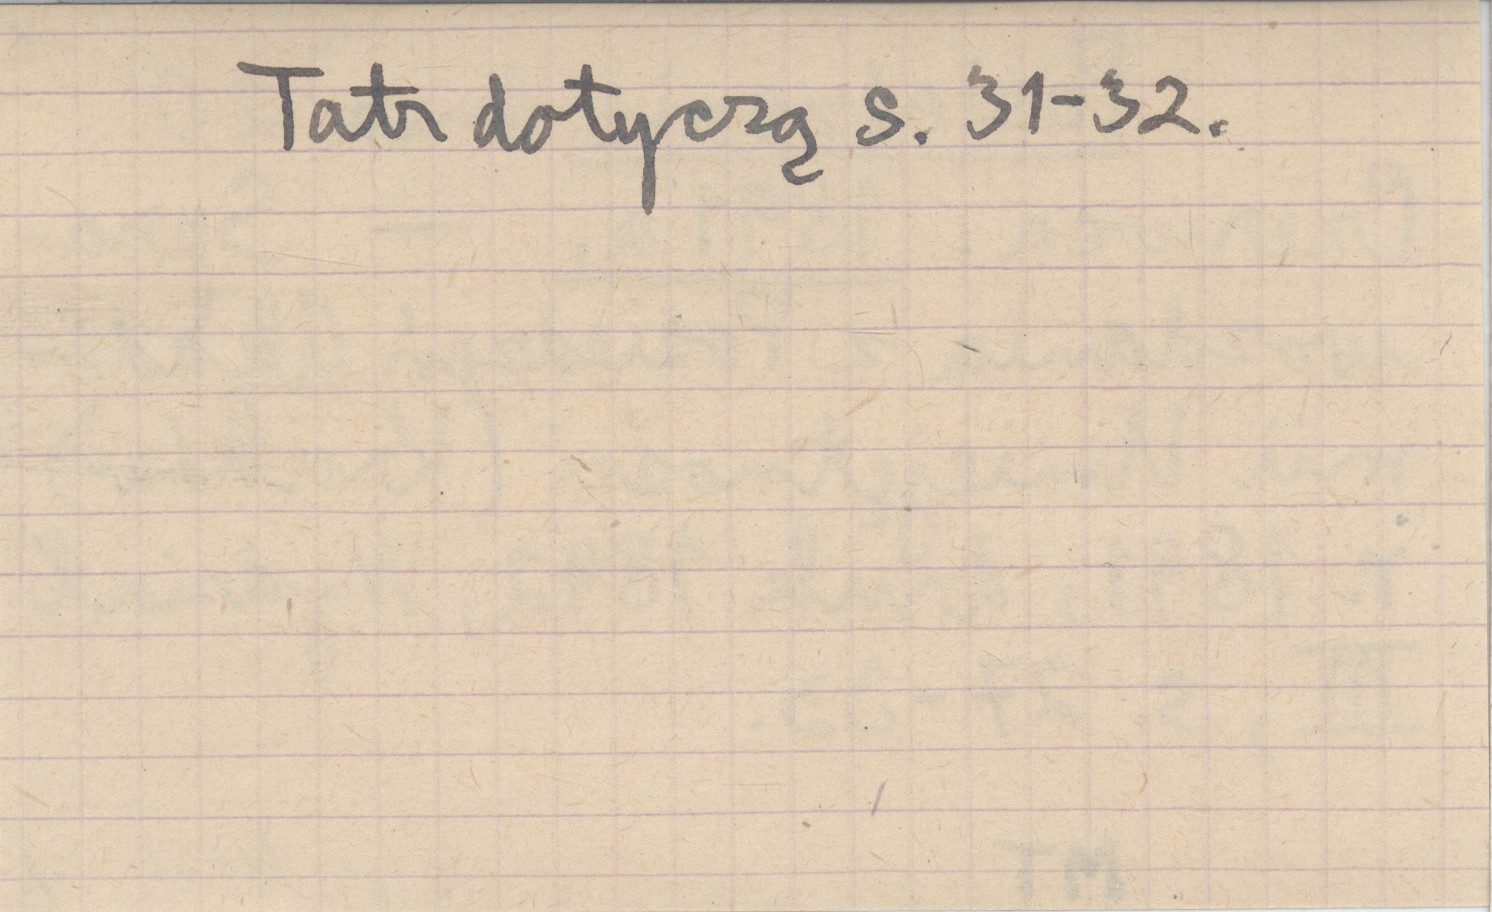 Tatr dotyczą s. 31-32.